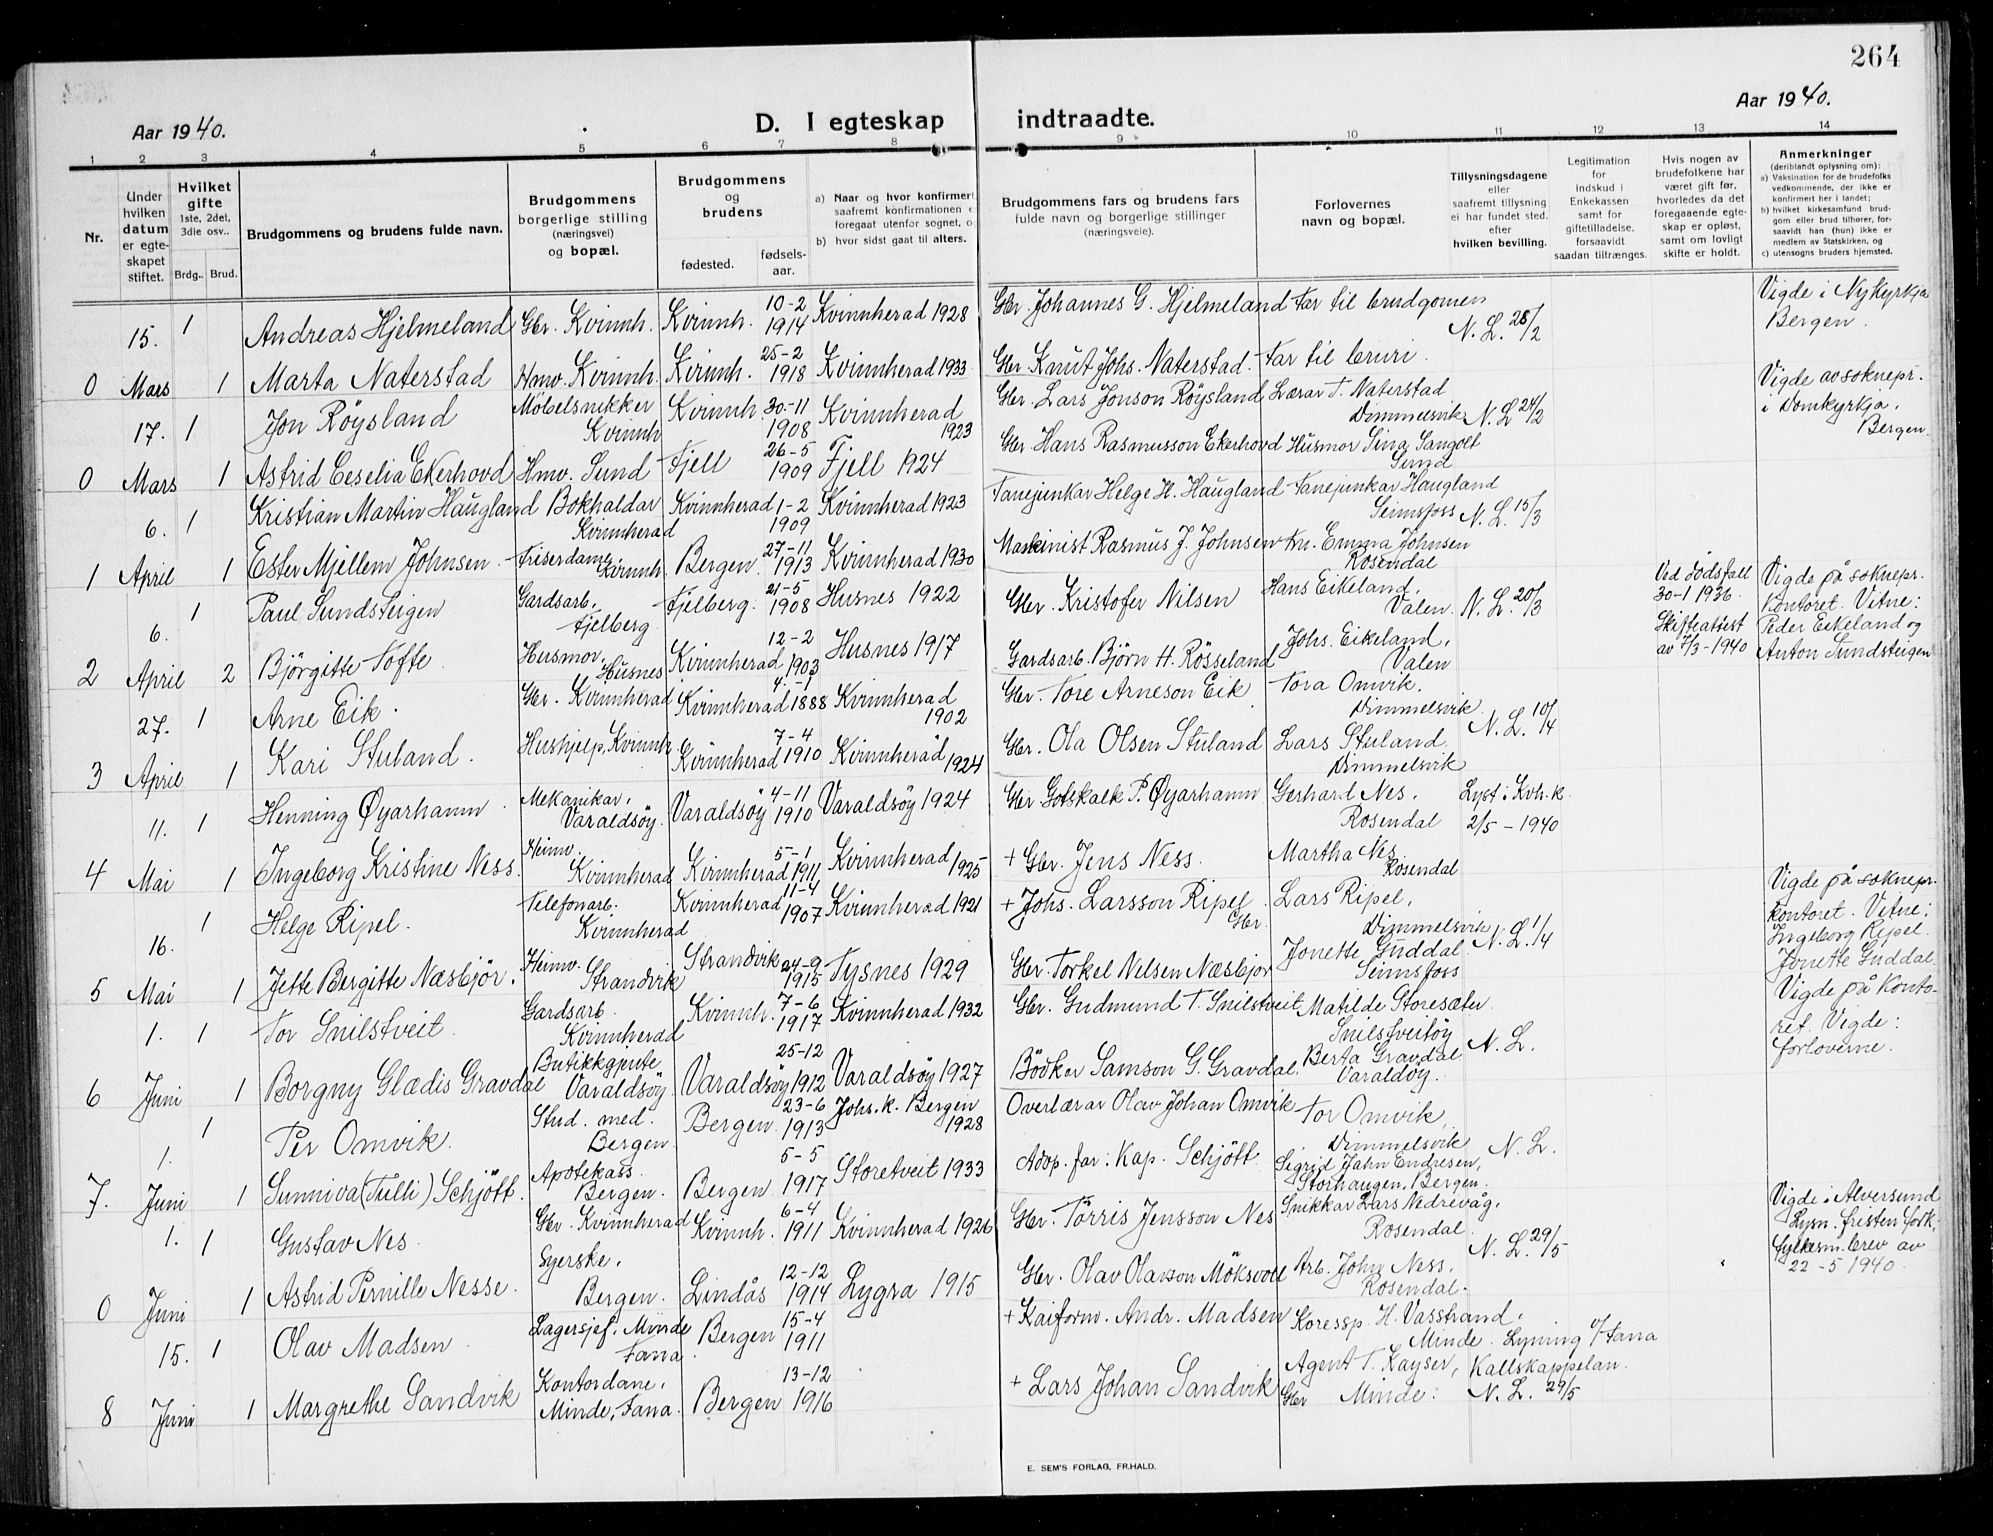 264
Aar 1940.
D. I egteskap indtraadte.
Aar 1940.
1 2 3 4 5 6 7 8 9 10 11 12 13 14
Nr.
Under hvilken datum er egteskapet stiftet.
Hvilket gifte 1ste, 2det, 3die osv..
Brdg.. Brud.
Brudgommens og brudens fulde navn.
Brudgommens borgerlige stilling (næringsvei) og bopæl.
Brudgommens og brudens
fødested. fødselsaar.
a) Naar og hvor konfirmert saafremt konfirmationen foregaat utenfor sognet,
b) hvor sidst gaat til alters.
Brudgommens fars og brudens fars fulde navn og borgerlige stillinger (næringsveie).
Forlovernes navn og bopæl.
Tillysningsdagene eller saafremt tillysning ei har fundet sted. efter hvilken bevilling.
Legitimation for indskud i Enkekassen samt for giftetilladelse, forsaavidt saadan tiltrænges.
Hvis nogen av brudefolkene har været gift før, hvorledes da det foregaaende egteskap er opløst, samt om lovligt skifte er holdt.
Anmerkninger
(deriblandt oplysning om):
a) Vaksination for de brudefolks vedkommende, der ikke er konfirmert her i landet;
b) hvilket kirkesamfund brudgom eller brud tilhører, forsaavidt han (hun) ikke er medlem av Statskirken, og
c) utensogns bruders hjemsted.
15. 1 Andreas Hjelmeland Gbr. Kvinnh. Kvinnh. 10-2 1914 Kvinnherad 1928 Gbr. Johannes G. Hjelmeland Far til brudgomen N. L. 28/2 Vigde i Nykyrkja Bergen.
0 Mars 1 Marta Naterstad Hmv. Kvinnh. Kvinnh. 25-2 1918 Kvinnherad 1933 Gbr. Knut Johs. Naterstad. Far til bruri.
17. 1 Jon Röysland Möbelsnikker Kvinnh Kvinnh. 30-11 1908 Kvinnherad 1923 Gbr. Lars Jonson Röysland Lærar T. Naterstad Dimmelsvik N. L. 24/2 Vigde av soknepr. i Domkyrkja. Bergen.
0 Mars 1 Astrid Ceselia Ekerhovd Hmv. Sund Fjell 26-5 1909 Fjell 1924 Gbr. Hans Rasmusson Ekerhovd Husmor Sina Sangolt Sund
6. 1 Kristian Martin Haugland Bokhaldar Kvinnherad Kvinnherad 1-2 1909 Kvinnherad 1923 Fanejunkar Helge H. Haugland Fanejunkar Haugland Seimsfoss N. L. 15/3
1 April 1 Ester Mjellem Johnsen Friserdame. Kvinnh. Bergen. 27-11 1913 Kvinnherad 1930 Maskinist Rasmus J. Johnsen Fru. Emma Johnsen Rosendal
6. 1 Paul Sundsteigen Gardsarb. Fjelberg Fjelberg. 21-5 1908 Husnes 1922 Gbr. Kristofer Nilsen Hans Eikeland, Valen. N. L. 20/3 Ved dödsfall 30-1 1936. Skifteattest av 7/3-1940 Vigde på soknepr. kontoret. Vitne: Peder Eikeland og Anton Sundsteigen
2 April 2 Björgitte Tofte. Husmor, Husnes Kvinnherad 12-2 1903 Husnes 1917 Gardsarb. Björn H. Rösseland Johs. Eikeland, Valen
27. 1 Arne Eik. Gbr. Kvinnherad Kvinnherad 4.-1 1888 Kvinnherad 1902 Gbr. Tore Arneson Eik Tora Omvik. Dimmelsvik N. L. 10/4
3 April 1 Kari Stuland. Hushjelp. Kvinnh. Kvinnherad 7-4 1910 Kvinnherad 1924 Gbr. Ola Olsen Stuland Lars Stuland Dimmelsvik
11. 1 Henning Øyarhamn Mekanikar. Varaldsöy. Varaldsöy 4-11 1910 Varaldsöy 1924 Gbr Gotskalk P. Øyarhamn Gerhard Nes. Rosendal Lyst i Kvh. k. 2/5-1940
4 Mai 1 Ingeborg Kristine Ness. Heimv. Kvinnherad Kvinnherad 5-1 1911 Kvinnherad 1925 + Gbr. Jens Ness. Martha Nes Rosendal
16. 1 Helge Ripel. Telefonarb. Kvinnherad Kvinnherad 11-4 1907 Kvinnherad 1921 + Johs. Larsson Ripel. Gbr. Lars Ripel, Dimmelsvik N. L. 1/4 Vigde på soknepr. kontoret. Vitne: Ingeborg Ripel. Jonette Guddal.
5 Mai 1 Jette Bergitte Næsbjör. Heimv. Strandvik Strandvik 24-9 1915 Tysnes 1929 Gbr. Torkel Nilsen Næsbjor Jonette Guddal Seimsfoss
1. 1 Tor Snilstveit. Gardsarb. Kvinnherad Kvinnh. 7-6 1917 Kvinnherad 1932 Gbr. Gudmund T. Snilstveit Matilde Storesæter. Snilstveitöy N. L. Vigde på kontoret. Vigde: forloverne.
6 Juni 1 Borgny Glædis Gravdal Butikkgjente Varaldsöy Varaldsöy 25-12 1912 Varaldsöy 1927 Bödker Samson G. Gravdal. Berta Gravdal Varaldöy.
1. 1 Per Omvik. Stud. med. Bergen. Bergen. 23-6 1913 Johs. k. Bergen 1928 Overlærar Olav Johan Omvik Tor Omvik, Dimmelsvik N. L.
7. Juni 1 Sunniva (Tulli) Schjött. Apotekass. Bergen. Bergen 5-5 1917 Storetveit 1933 Adop. far: Kap. Schjött Sigrid Jahn Endresen, Storhaugen, Bergen.
1. 1 Gustav Nes Gbr. Kvinnherad Kvinnh. 6-4 1911 Kvinnherad 1926 Gbr. Törris Jensson Nes Snikkar Lars Nedrevåg, Rosendal. N. L. 29/5 Vigde i Alversund Lysn. fristen fork. fylkesm. brev av 22-5 1940.
0 Juni 1 Astrid Pernille Nesse. Syerske, Bergen. Lindås 12-12 1914 Lygra 1915 Gbr. Olav Olavson Möksvoll Arb. John Ness, Rosendal.
15. 1 Olav Madsen Lagersjef. Minde Fana. Bergen 15-4 1911 + Kaiform. Andr. Madsen Koressp. H. Vasstrand, Minde. Lysning i Fana Kallskappelan.
8 Juni 1 Margrethe Sandvik Kontordame, Minde, Fana. Bergen 13-12 1916 + Lars Johan Sandvik Gbr Agent T. Kayser, Minde: N. L. 29/5
E. SEM'S FORLAG, FR.HALD.